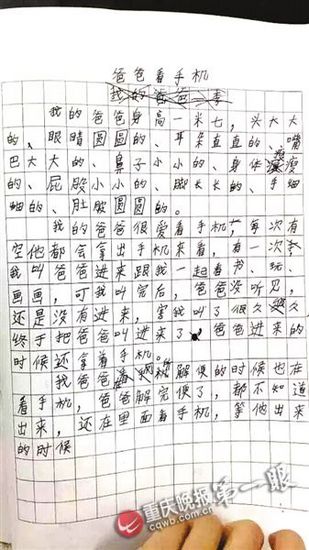 爸爸看手机
我的爸爸
我的爸爸身高一米七，头大大
的、眼睛圆圆的、耳朵直直的、嘴
巴大大的、鼻子小小的、身体瘦瘦
的、屁股小小的、脚长长的、手细
细的、肚脸圆圆的。
我的爸爸很爱看手机，每次有
空他都会拿出手机来看，有一次
我叫爸爸进来跟我一起看书、玩、
画画，可我叫完后，爸爸没听见，
还是没有进来，害我叫了很久
终于把爸爸叫进来了 爸爸进来的
时候还拿着手机。
我爸爸 解便的时候也在
看手机，爸爸解完便了，都不知道
出来，还在里面看手机，等他出来
的时候
重庆晚报 第一眼
www.cqwb.com.cn